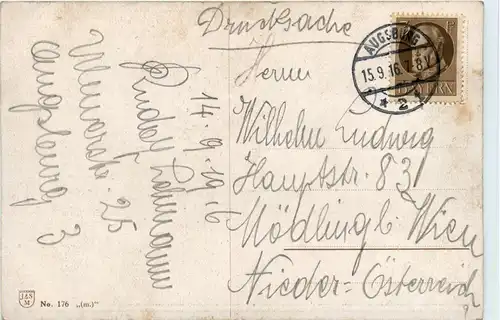 Drucksache
Herrn
Wilhelm Ludwig
Hauptstr. 83
Mödling b. Wien
Nieder-Österreich
AUGSBURG
15.9.16. 7-8V.
* 2
BAYERN
14.9.1916
Rudolf Lehmann
Ulmerstr. 25
Augsburg 3
J&S
M
No. 176 „(m.)"